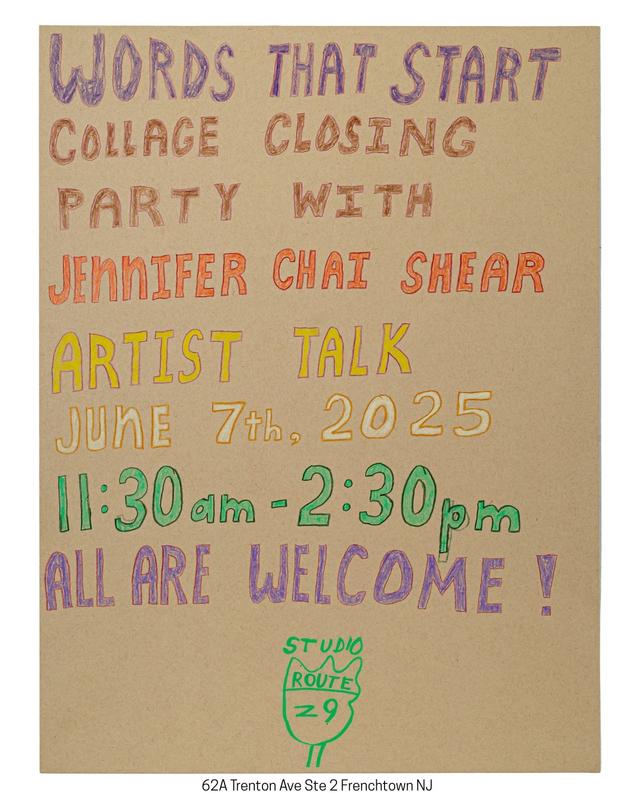 WORDS THAT START
COLLAGE CLOSING
PARTY WITH
JENNIFER CHAI SHEAR
ARTIST TALK
JUNE 7th, 2025
11:30am - 2:30pm
ALL ARE WELCOME!
STUDIO
ROUTE
29
62A Trenton Ave Ste 2 Frenchtown NJ